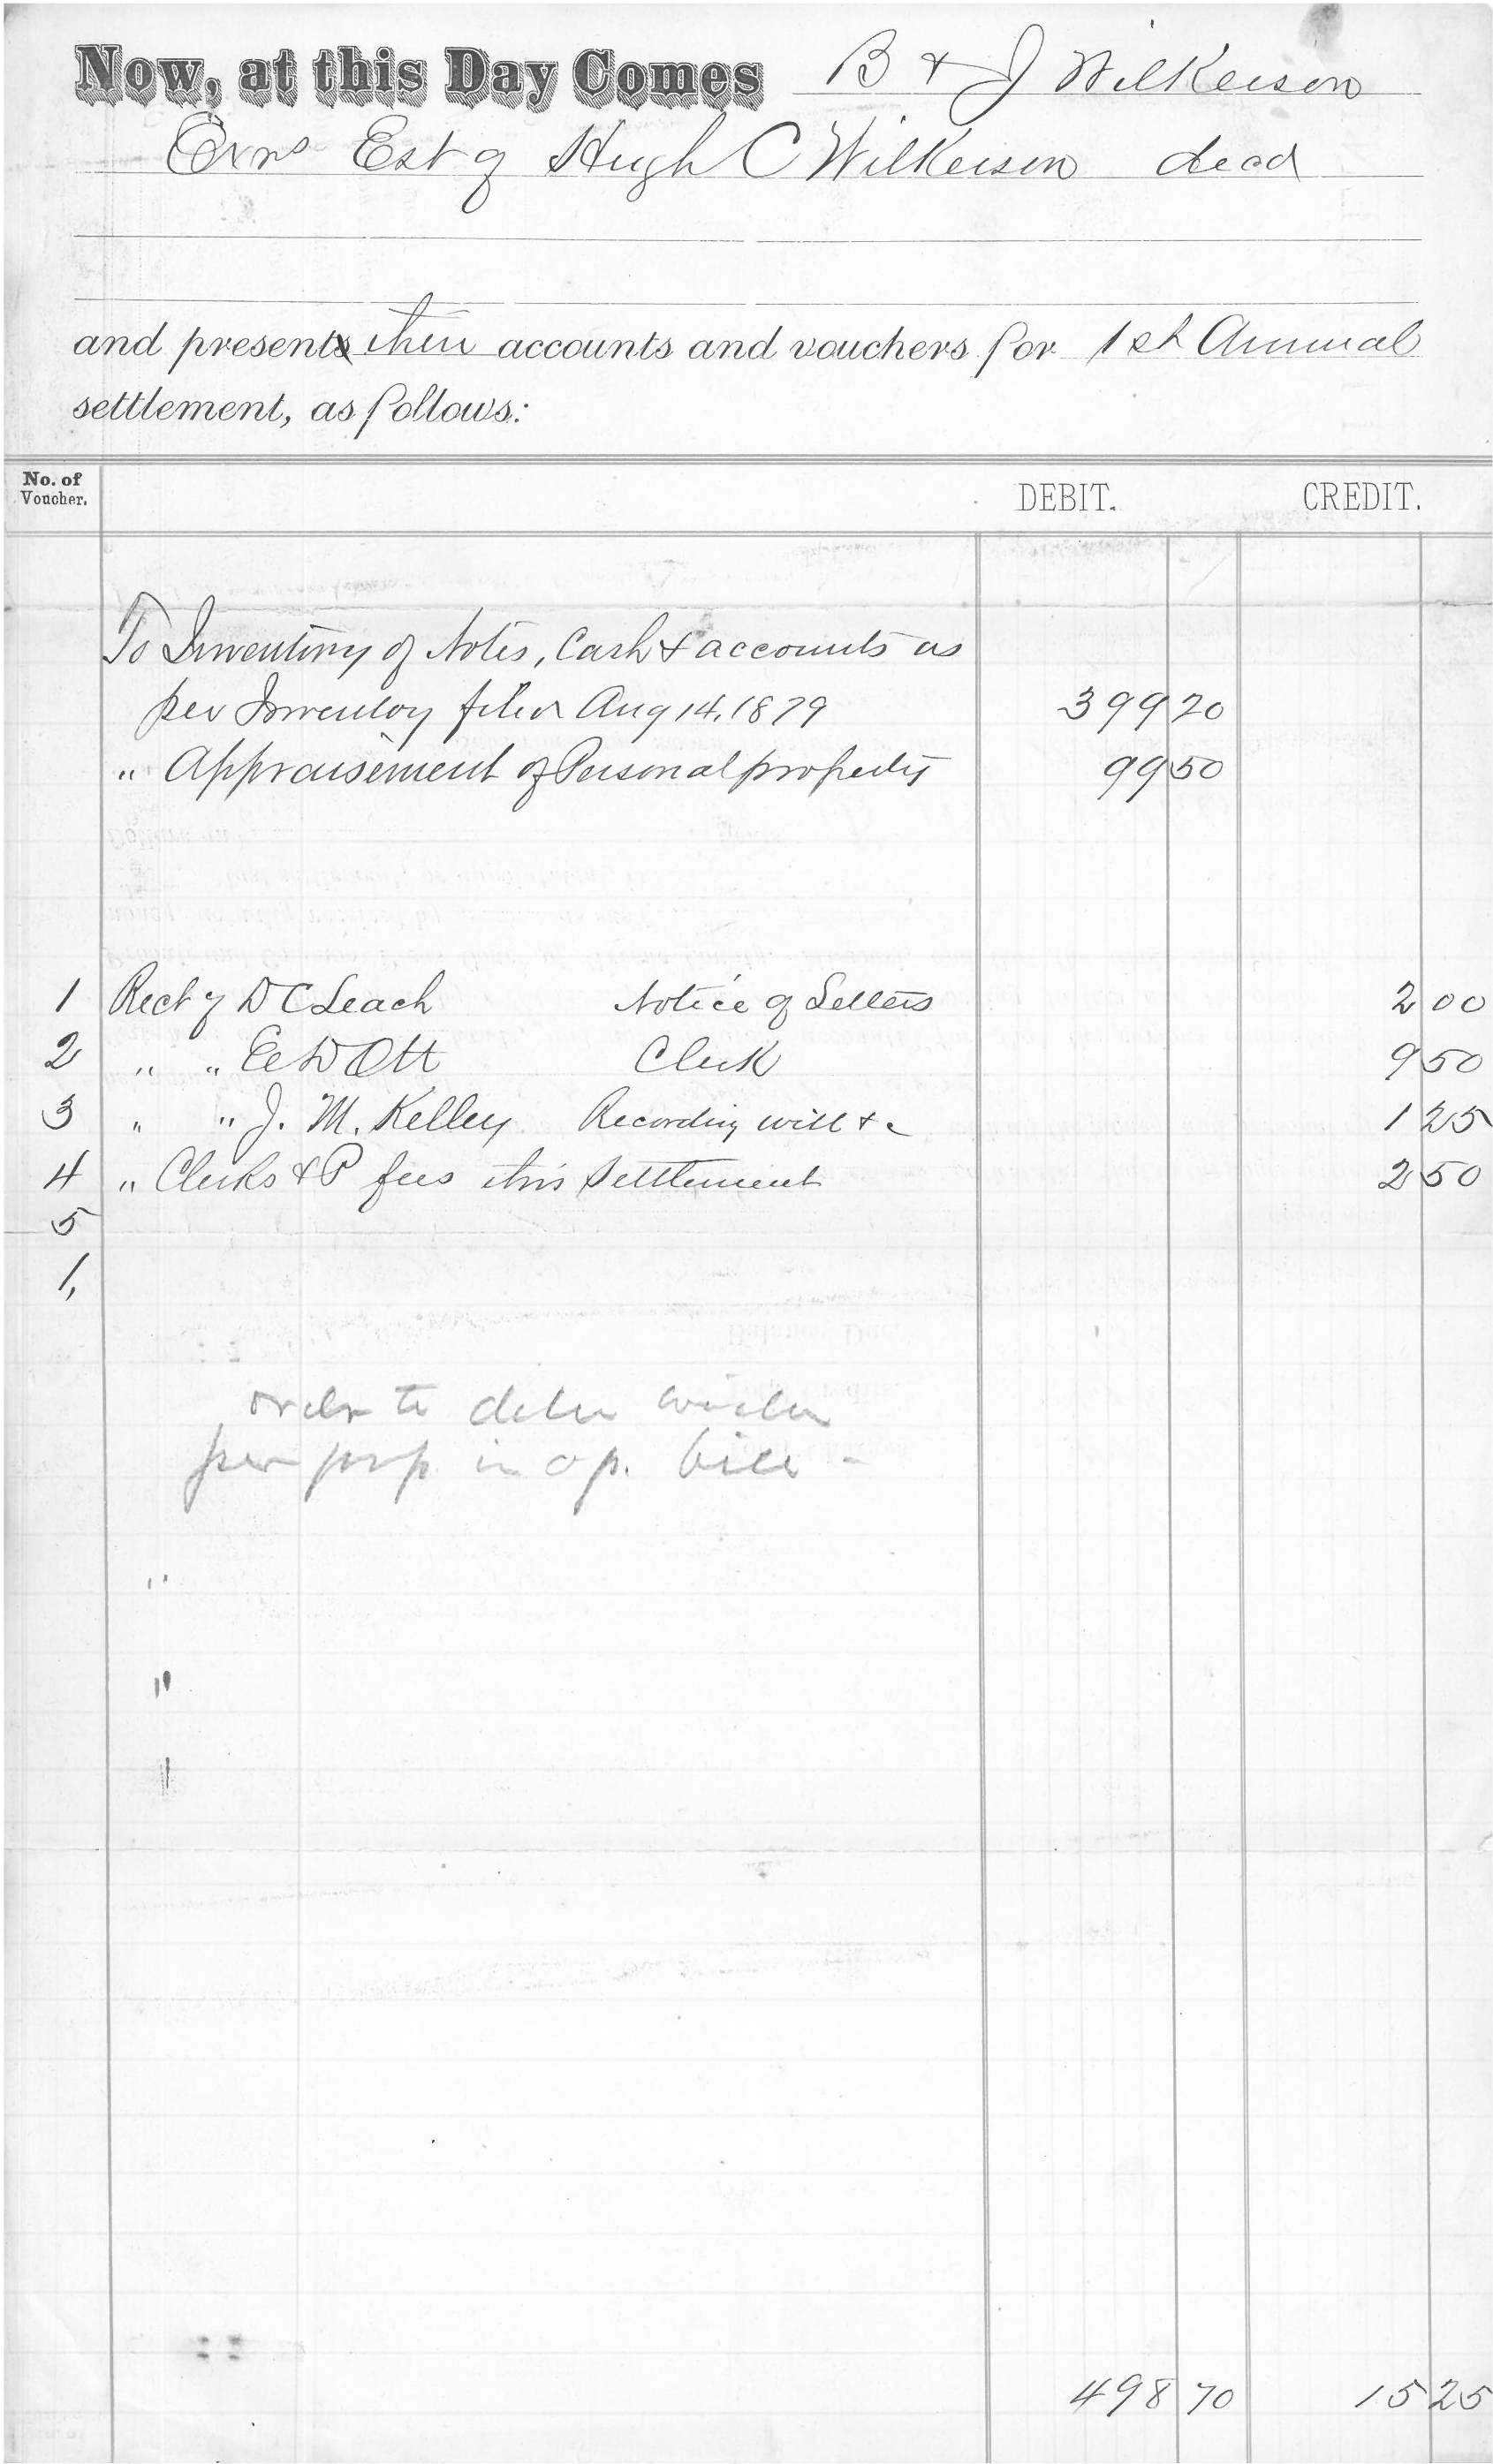 Now, at this Day Comes B & J Wilkerson
Exrs Est of Hugh C Wilkerson decd
and presents their accounts and vouchers for 1st Annual
settlement, as follows:
No. of Voucher. DEBIT. CREDIT.
To Inventory of Notes, Cash & accounts as
per Inventory filed Aug 14, 1879 399 20
" Appraisement of Personal property 99 50
1 Rect of D C Leach Notice of Letters 2 00
2 " " Ed D Ott Clerk 9 50
3 " " J. M. Kelley Recording will &c 1 25
4 " Clerks & P fees this Settlement 2 50
5
1,
order to
per prop in ap. bill -
"
"
498 70 15 25